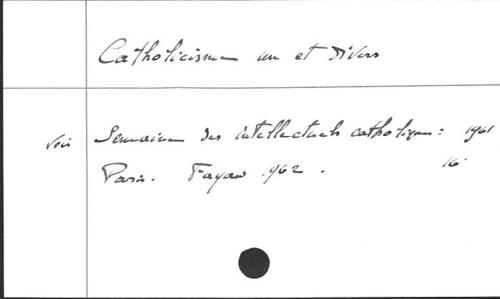 Catholicisme un et divers
Voir Semaine des intellectuels catholiques : 1961
Paris. Fayard 1962. 16°